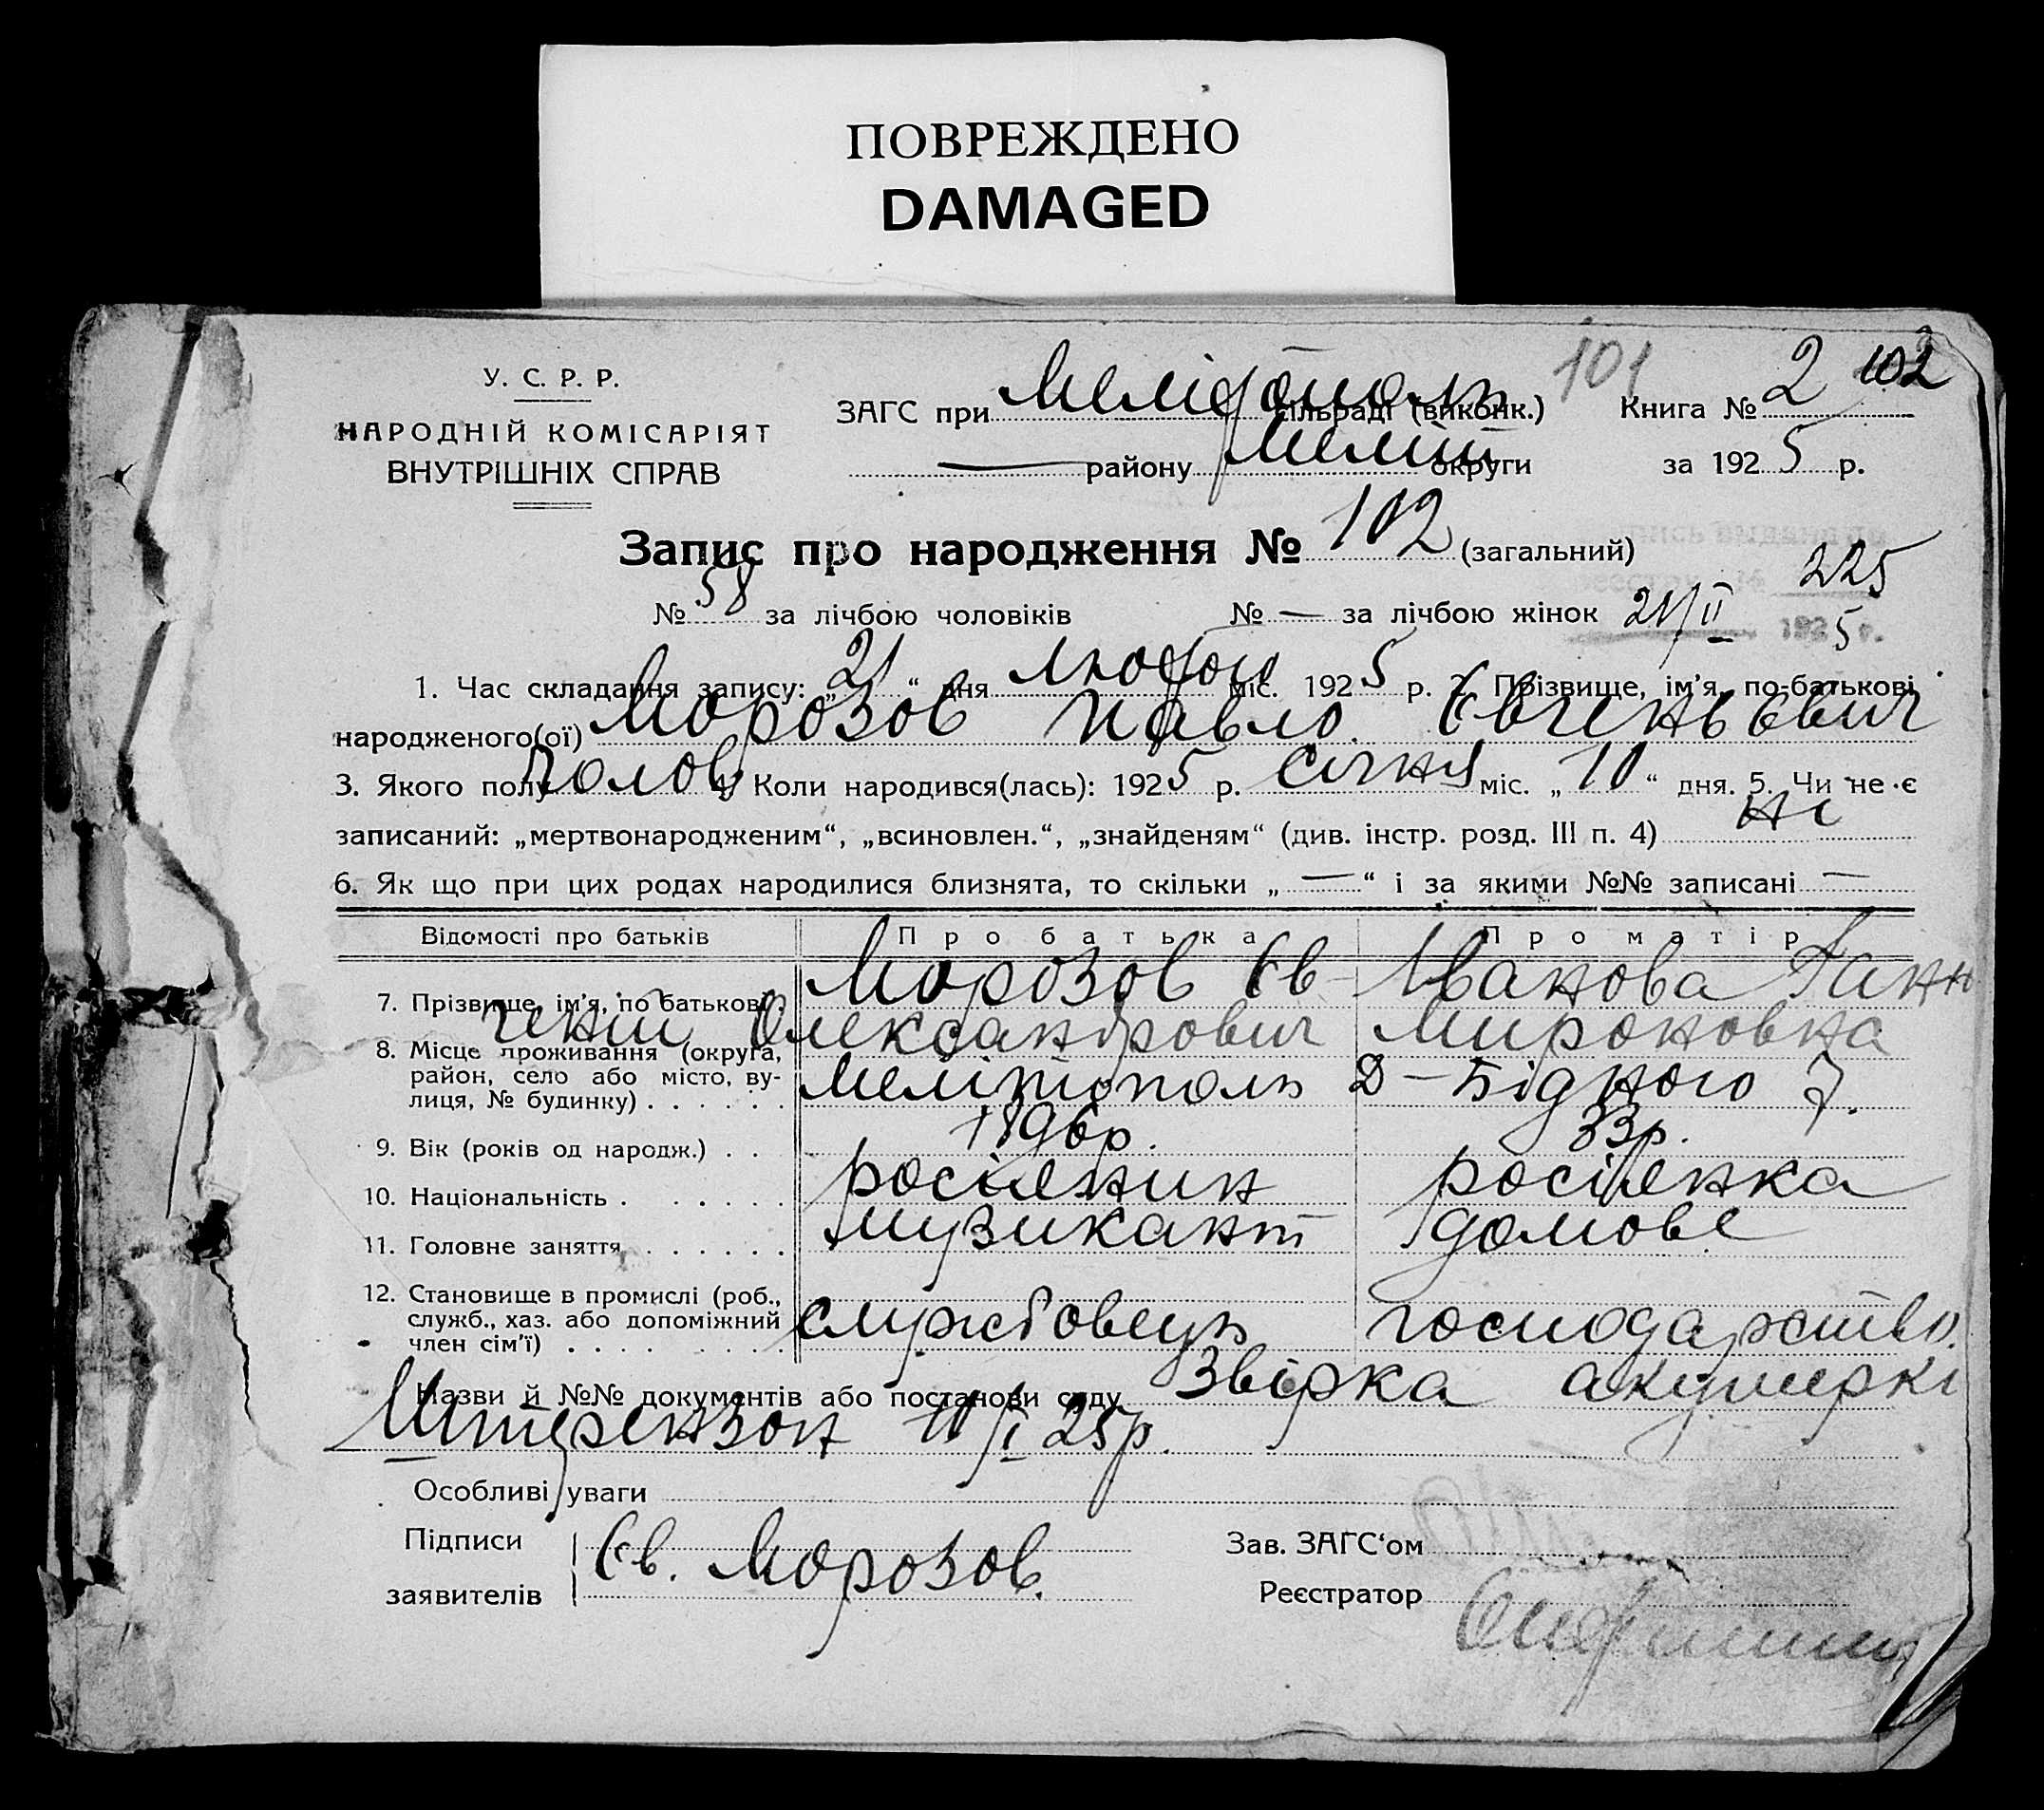 ПОВРЕЖДЕНО
DAMAGED
У. С. Р. Р.
НАРОДНІЙ КОМІСАРІЯТ
ВНУТРІШНІХ СПРАВ
101 102
ЗАГС при Мелітополь сільраді (виконк.) Книга № 2
— району Меліт округи за 1925 р.
Запис про народження № 102 (загальний)
225
№ 58 за лічбою чоловіків № — за лічбою жінок 21/II 1925 г.
1. Час складання запису: „21“ дня лютого міс. 1925 р. 2. Прізвище, ім'я, по-батькові
народженого(ої) Морозов Павло Євгеньевич
3. Якого полу чолов 4. Коли народився(лась): 1925 р. січня міс. „10“ дня. 5. Чи не є
записаний: „мертвонародженим“, „всиновлен.“, „знайденям“ (див. інстр. розд. III п. 4) ні
6. Як що при цих родах народилися близнята, то скільки „—“ і за якими №№ записані —
Відомості про батьків Про батька Про матір
7. Прізвище, ім'я, по батькові. Морозов Єв- Іванова Ганн
гений Олександрович Мироновна
8. Місце проживання (округа,
район, село або місто, ву-
лиця, № будинку) . . . . . . Мелітополь Д-Бідного 7.
9. Вік (років од народж.) . . 1896р. 33р.
10. Національність . . . . . . росіянин росіянка
11. Головне заняття . . . . . . музикант домове
12. Становище в промислі (роб.,
служб., хаз. або допоміжний
член сім'ї) . . . . . . . . службовець господарство.
Назви й №№ документів або постанови суду Звірка акушерки
10/I 25р.
Особливі уваги
Підписи
заявителів Єв. Морозов.
Зав. ЗАГС'ом
Реєстратор